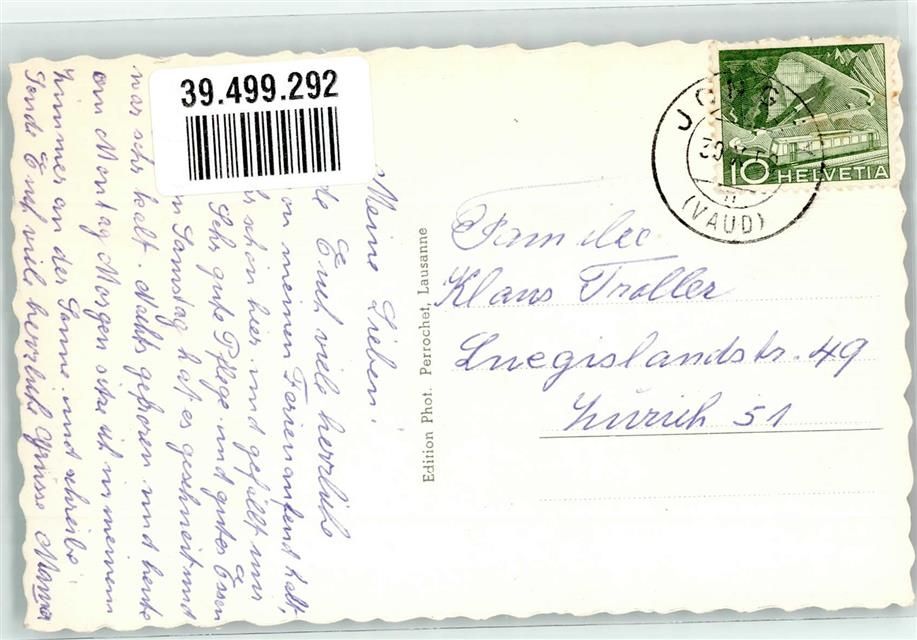 39.499.292
JONGNY
(VAUD)
10 HELVETIA
Familie
Klaus Troller
Luegislandstr. 49
Zürich 51
Edition Phot. Perrochet, Lausanne
Meine Lieben.
Euch viele herzliche
von meinem Ferienaufenthalt,
schön hier und gefällt mir
Sehr gute Pflege und gutes Essen
Samstag hat es geschneit und
war sehr kalt. Nachts gefroren und heute
am Montag Morgen sitze ich in meinem
Zimmer an der Sonne und schreibe
Sende Euch viele herzliche Grüsse Mama